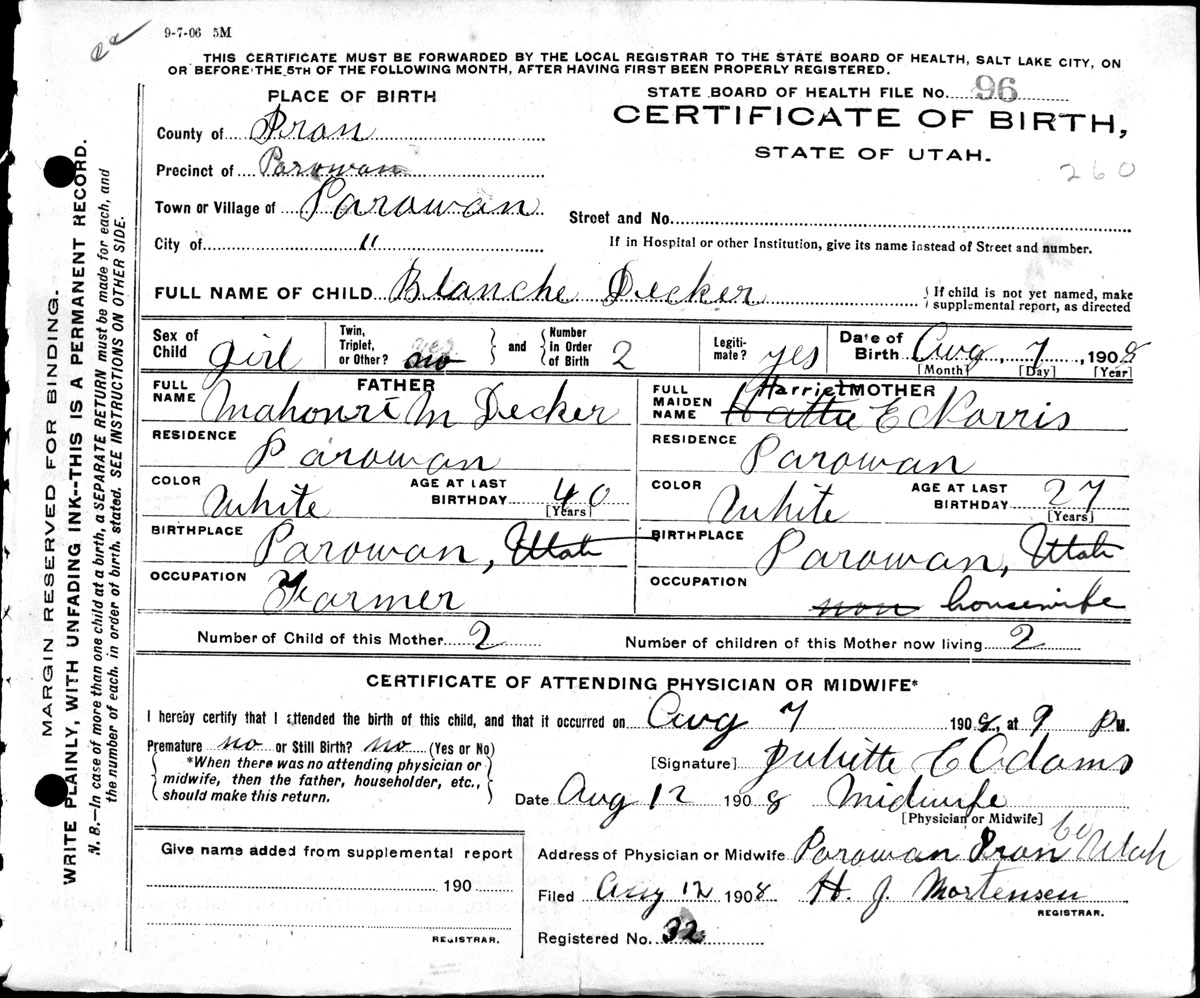 9-7-06 5M
THIS CERTIFICATE MUST BE FORWARDED BY THE LOCAL REGISTRAR TO THE STATE BOARD OF HEALTH, SALT LAKE CITY, ON
OR BEFORE THE 5TH OF THE FOLLOWING MONTH, AFTER HAVING FIRST BEEN PROPERLY REGISTERED.
MARGIN RESERVED FOR BINDING.
WRITE PLAINLY, WITH UNFADING INK--THIS IS A PERMANENT RECORD.
N. B.—In case of more than one child at a birth, a SEPARATE RETURN must be made for each, and
the number of each, in order of birth, stated. SEE INSTRUCTIONS ON OTHER SIDE.
PLACE OF BIRTH
STATE BOARD OF HEALTH FILE No. 96
CERTIFICATE OF BIRTH,
STATE OF UTAH.
260
County of Iron
Precinct of Parowan
Town or Village of Parowan
Street and No.
City of "
If in Hospital or other Institution, give its name instead of Street and number.
FULL NAME OF CHILD Blanche Decker
If child is not yet named, make
supplemental report, as directed
Sex of Child girl Twin, Triplet, or Other? no and Number in Order of Birth 2 Legiti-mate? yes Date of Birth Aug 7, 1908
[Month] [Day] [Year]
FATHER
FULL NAME Mahonri M Decker
RESIDENCE Parowan
COLOR White AGE AT LAST BIRTHDAY 40
[Years]
BIRTHPLACE Parowan, Utah
OCCUPATION Farmer
MOTHER
FULL MAIDEN NAME Harriet Hattie E C Norris
RESIDENCE Parowan
COLOR White AGE AT LAST BIRTHDAY 27
[Years]
BIRTHPLACE Parowan, Utah
OCCUPATION non housewife
Number of Child of this Mother 2 Number of children of this Mother now living 2
CERTIFICATE OF ATTENDING PHYSICIAN OR MIDWIFE*
I hereby certify that I attended the birth of this child, and that it occurred on Aug 7 1908, at 9 P M.
Premature no or Still Birth? no (Yes or No)
*When there was no attending physician or
midwife, then the father, householder, etc.,
should make this return.
[Signature] Juliette E Adams
Date Aug 12 1908 Midwife
[Physician or Midwife]
Give name added from supplemental report
190
REGISTRAR.
Address of Physician or Midwife Parowan Iron Co Utah
Filed Aug 12 1908 H. J. Mortensen
REGISTRAR.
Registered No. 32